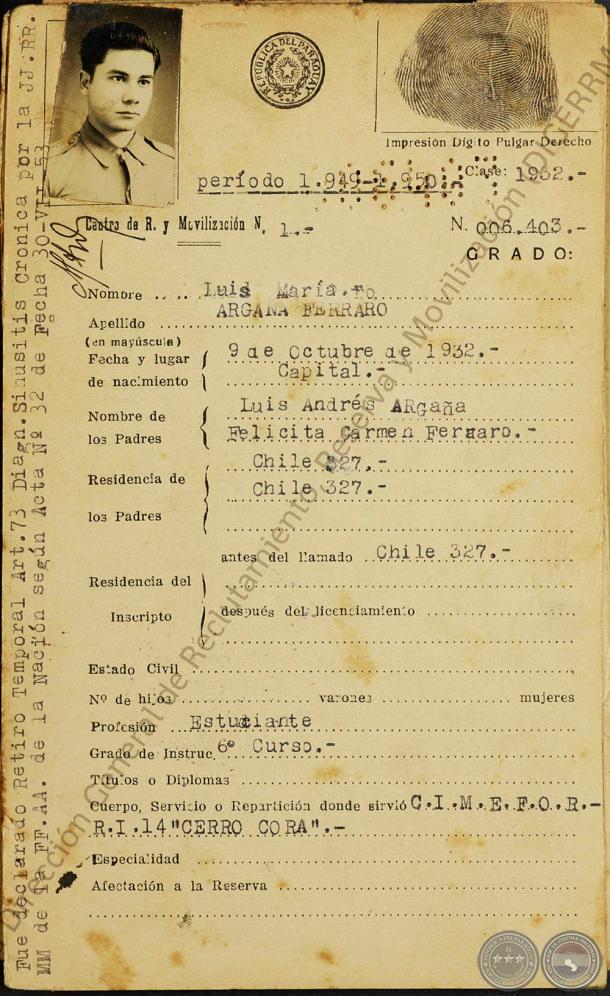 REPUBLICA DEL PARAGUAY
Impresión Dígito Pulgar Derecho
período 1.949-1.950.-
Clase: 1932.-
Centro de R. y Movilización N. 1.-
N. 006.403.-
GRADO:
Nombre Luis María.-
Apellido ARGAÑA FERRARO
(en mayúscula)
Fecha y lugar de nacimiento 9 de Octubre de 1932.-
Capital.-
Nombre de los Padres Luis Andrés ARgaña
Felicita Carmen Ferraro.-
Residencia de los Padres Chile 327.-
Chile 327.-
antes del llamado Chile 327.-
Residencia del Inscripto
después del licenciamiento
Estado Civil
Nº de hijos varones mujeres
Profesión Estudiante
Grado de Instruc. 6º Curso.-
Títulos o Diplomas
Cuerpo, Servicio o Repartición donde sirvió C.I.M.E.F.O.R.-
R.I.14 "CERRO CORA".-
Especialidad
Afectación a la Reserva
Fue declarado Retiro Temporal Art.73 Diagn.Sinusitis Cronica por la JJ.RR.
MM de la FF.AA. de la Nación según Acta Nº 32 de Fecha 30-VII-53
Dirección General de Reclutamiento, Reserva y Movilización (DIGERRMOV)